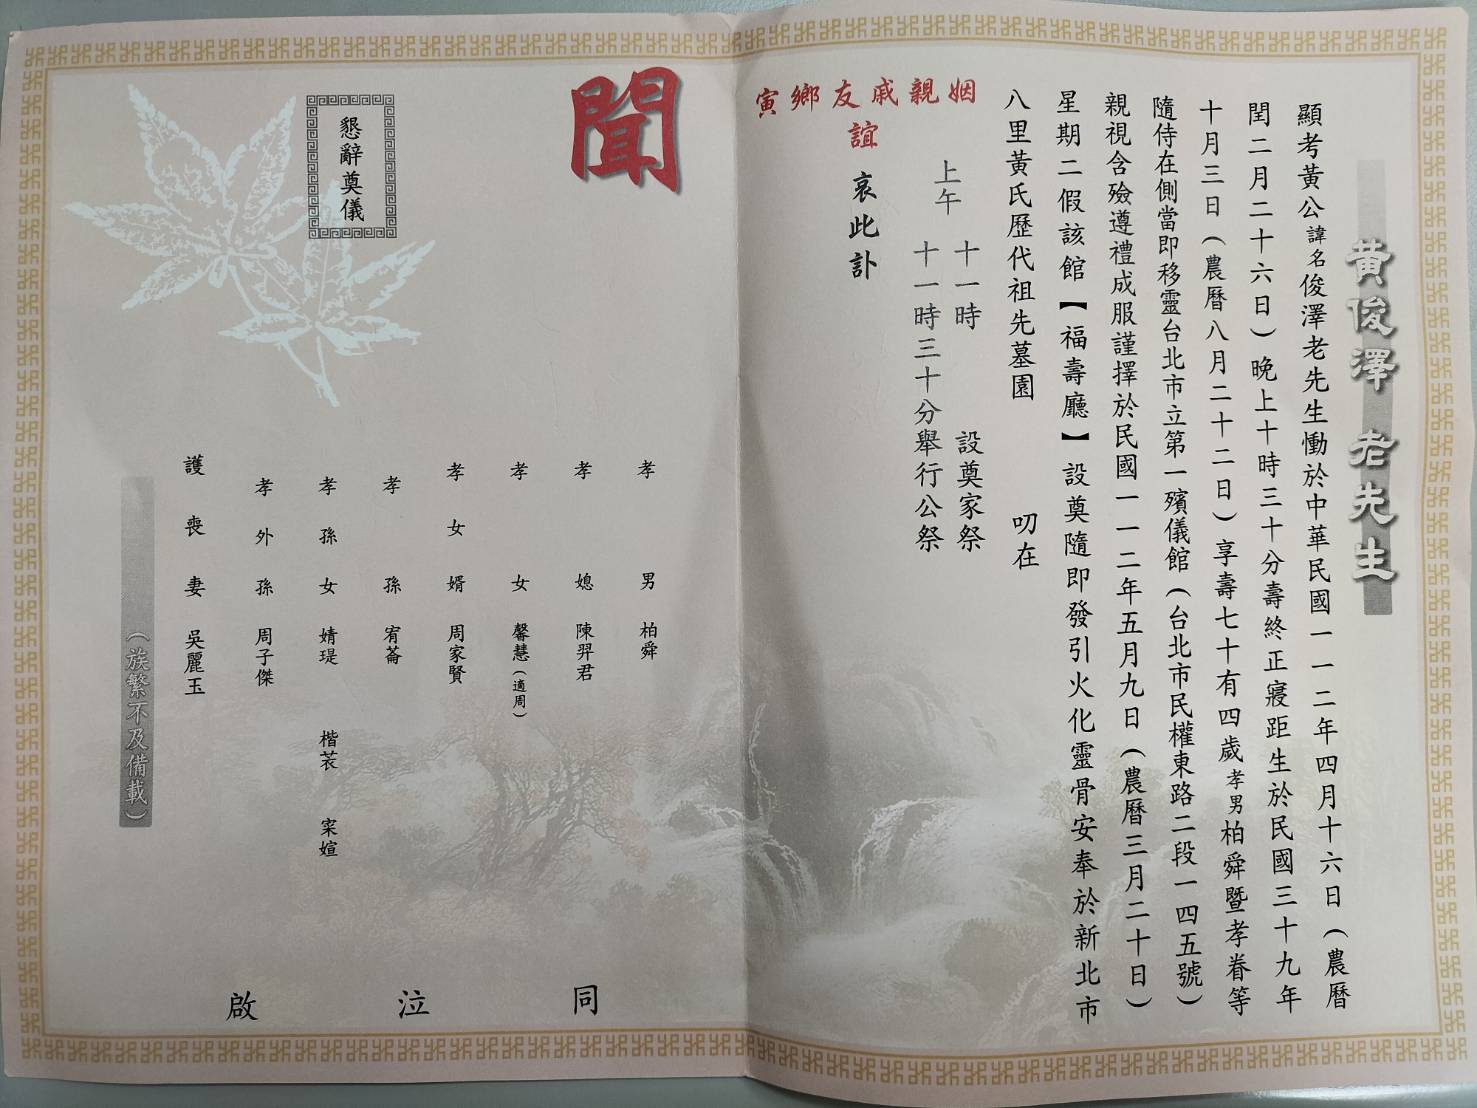 黃俊澤 老先生
顯考黃公諱名俊澤老先生慟於中華民國一一二年四月十六日(農曆
閏二月二十六日)晚上十時三十分壽終正寢距生於民國三十九年
十月三日(農曆八月二十二日)享壽七十有四歲孝男柏舜暨孝眷等
隨侍在側當即移靈台北市立第一殯儀館(台北市民權東路二段一四五號)
親視含殮遵禮成服謹擇於民國一一二年五月九日(農曆三月二十日)
星期二假該館【福壽廳】設奠隨即發引火化靈骨安奉於新北市
八里黃氏歷代祖先墓園 叨在
上午 十一時 設奠家祭
十一時三十分舉行公祭
姻親戚友鄉寅
誼
哀此訃
聞
孝男 柏舜
孝媳 陳羿君
孝女 馨慧(適周)
孝女婿 周家賢
孝孫 宥菕
孝孫女 婧瑅 楷䒾 寀媗
孝外孫 周子傑
護喪妻 吳麗玉
(族繁不及備載)
同 泣 啟
懇辭奠儀